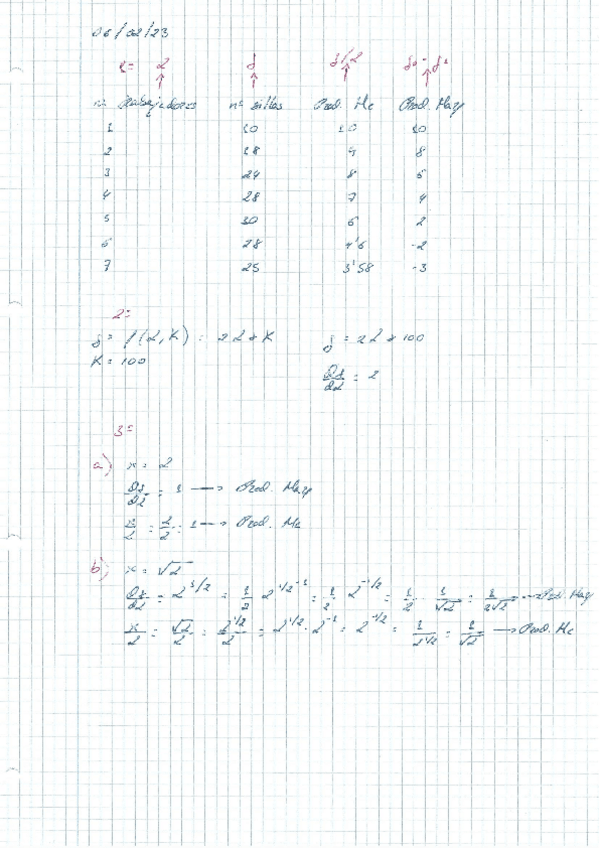 06/02/23
1= L q q/L q₁-q₀
nº trabajadores nº sillas Prod. Me Prod. Marg
1 10 10 10
2 18 9 8
3 24 8 6
4 28 7 4
5 30 6 2
6 28 4'6 -2
7 25 3'58 -3
2=
q = f(L,K) = 2L+K q = 2L+100
K = 100 ∂q/∂L = 2
3=
a) x = L
∂x/∂L = 1 → Prod. Marg
x/L = L/L = 1 → Prod. Me
b) x = √L
∂x/∂L = L^1/2 = 1/2 L^1/2-1 = 1/2 L^-1/2 = 1/2 · 1/√L = 1/2√L → Prod. Marg
x/L = √L/L = L^1/2/L = L^1/2 · L^-1 = L^-1/2 = 1/L^1/2 = 1/√L → Prod. Me